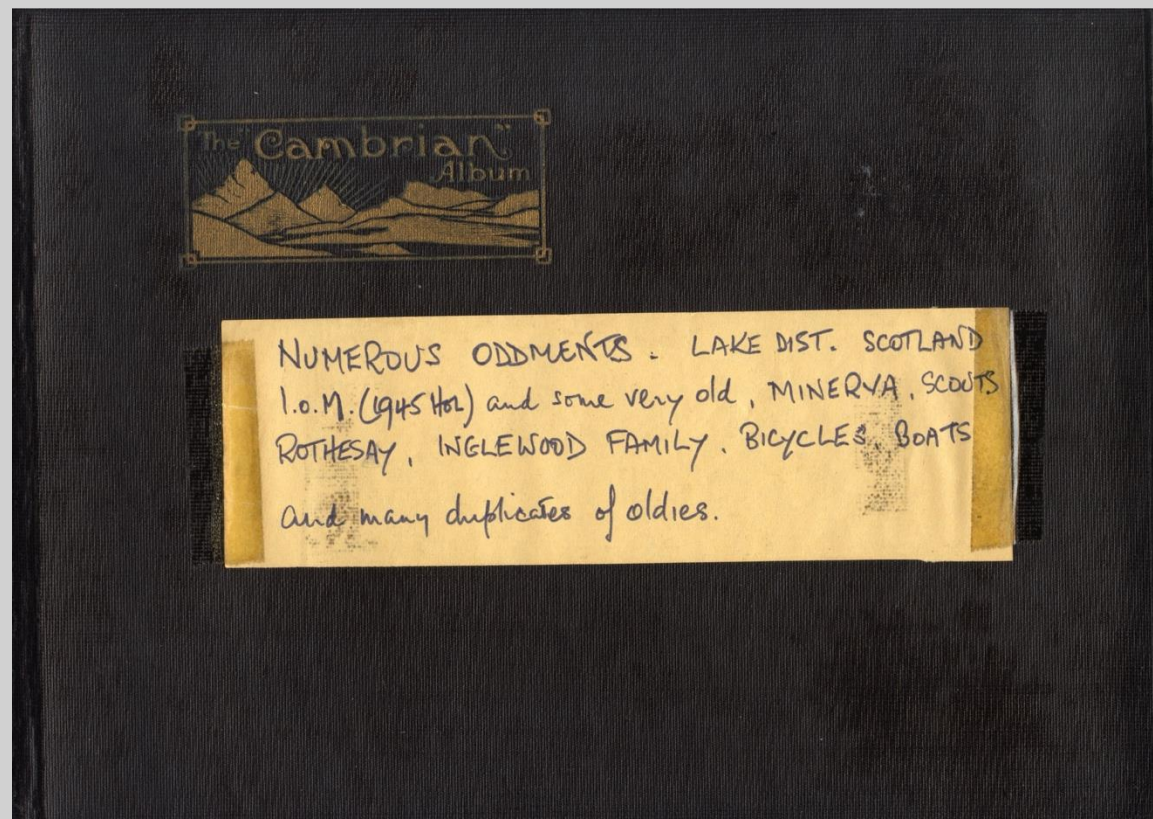 The "Cambrian"
Album
NUMEROUS ODDMENTS. LAKE DIST. SCOTLAND
I.O.M. (1945 HOL) and some very old, MINERVA, SCOUTS
ROTHESAY, INGLEWOOD FAMILY. BICYCLES, BOATS
and many duplicates of oldies.